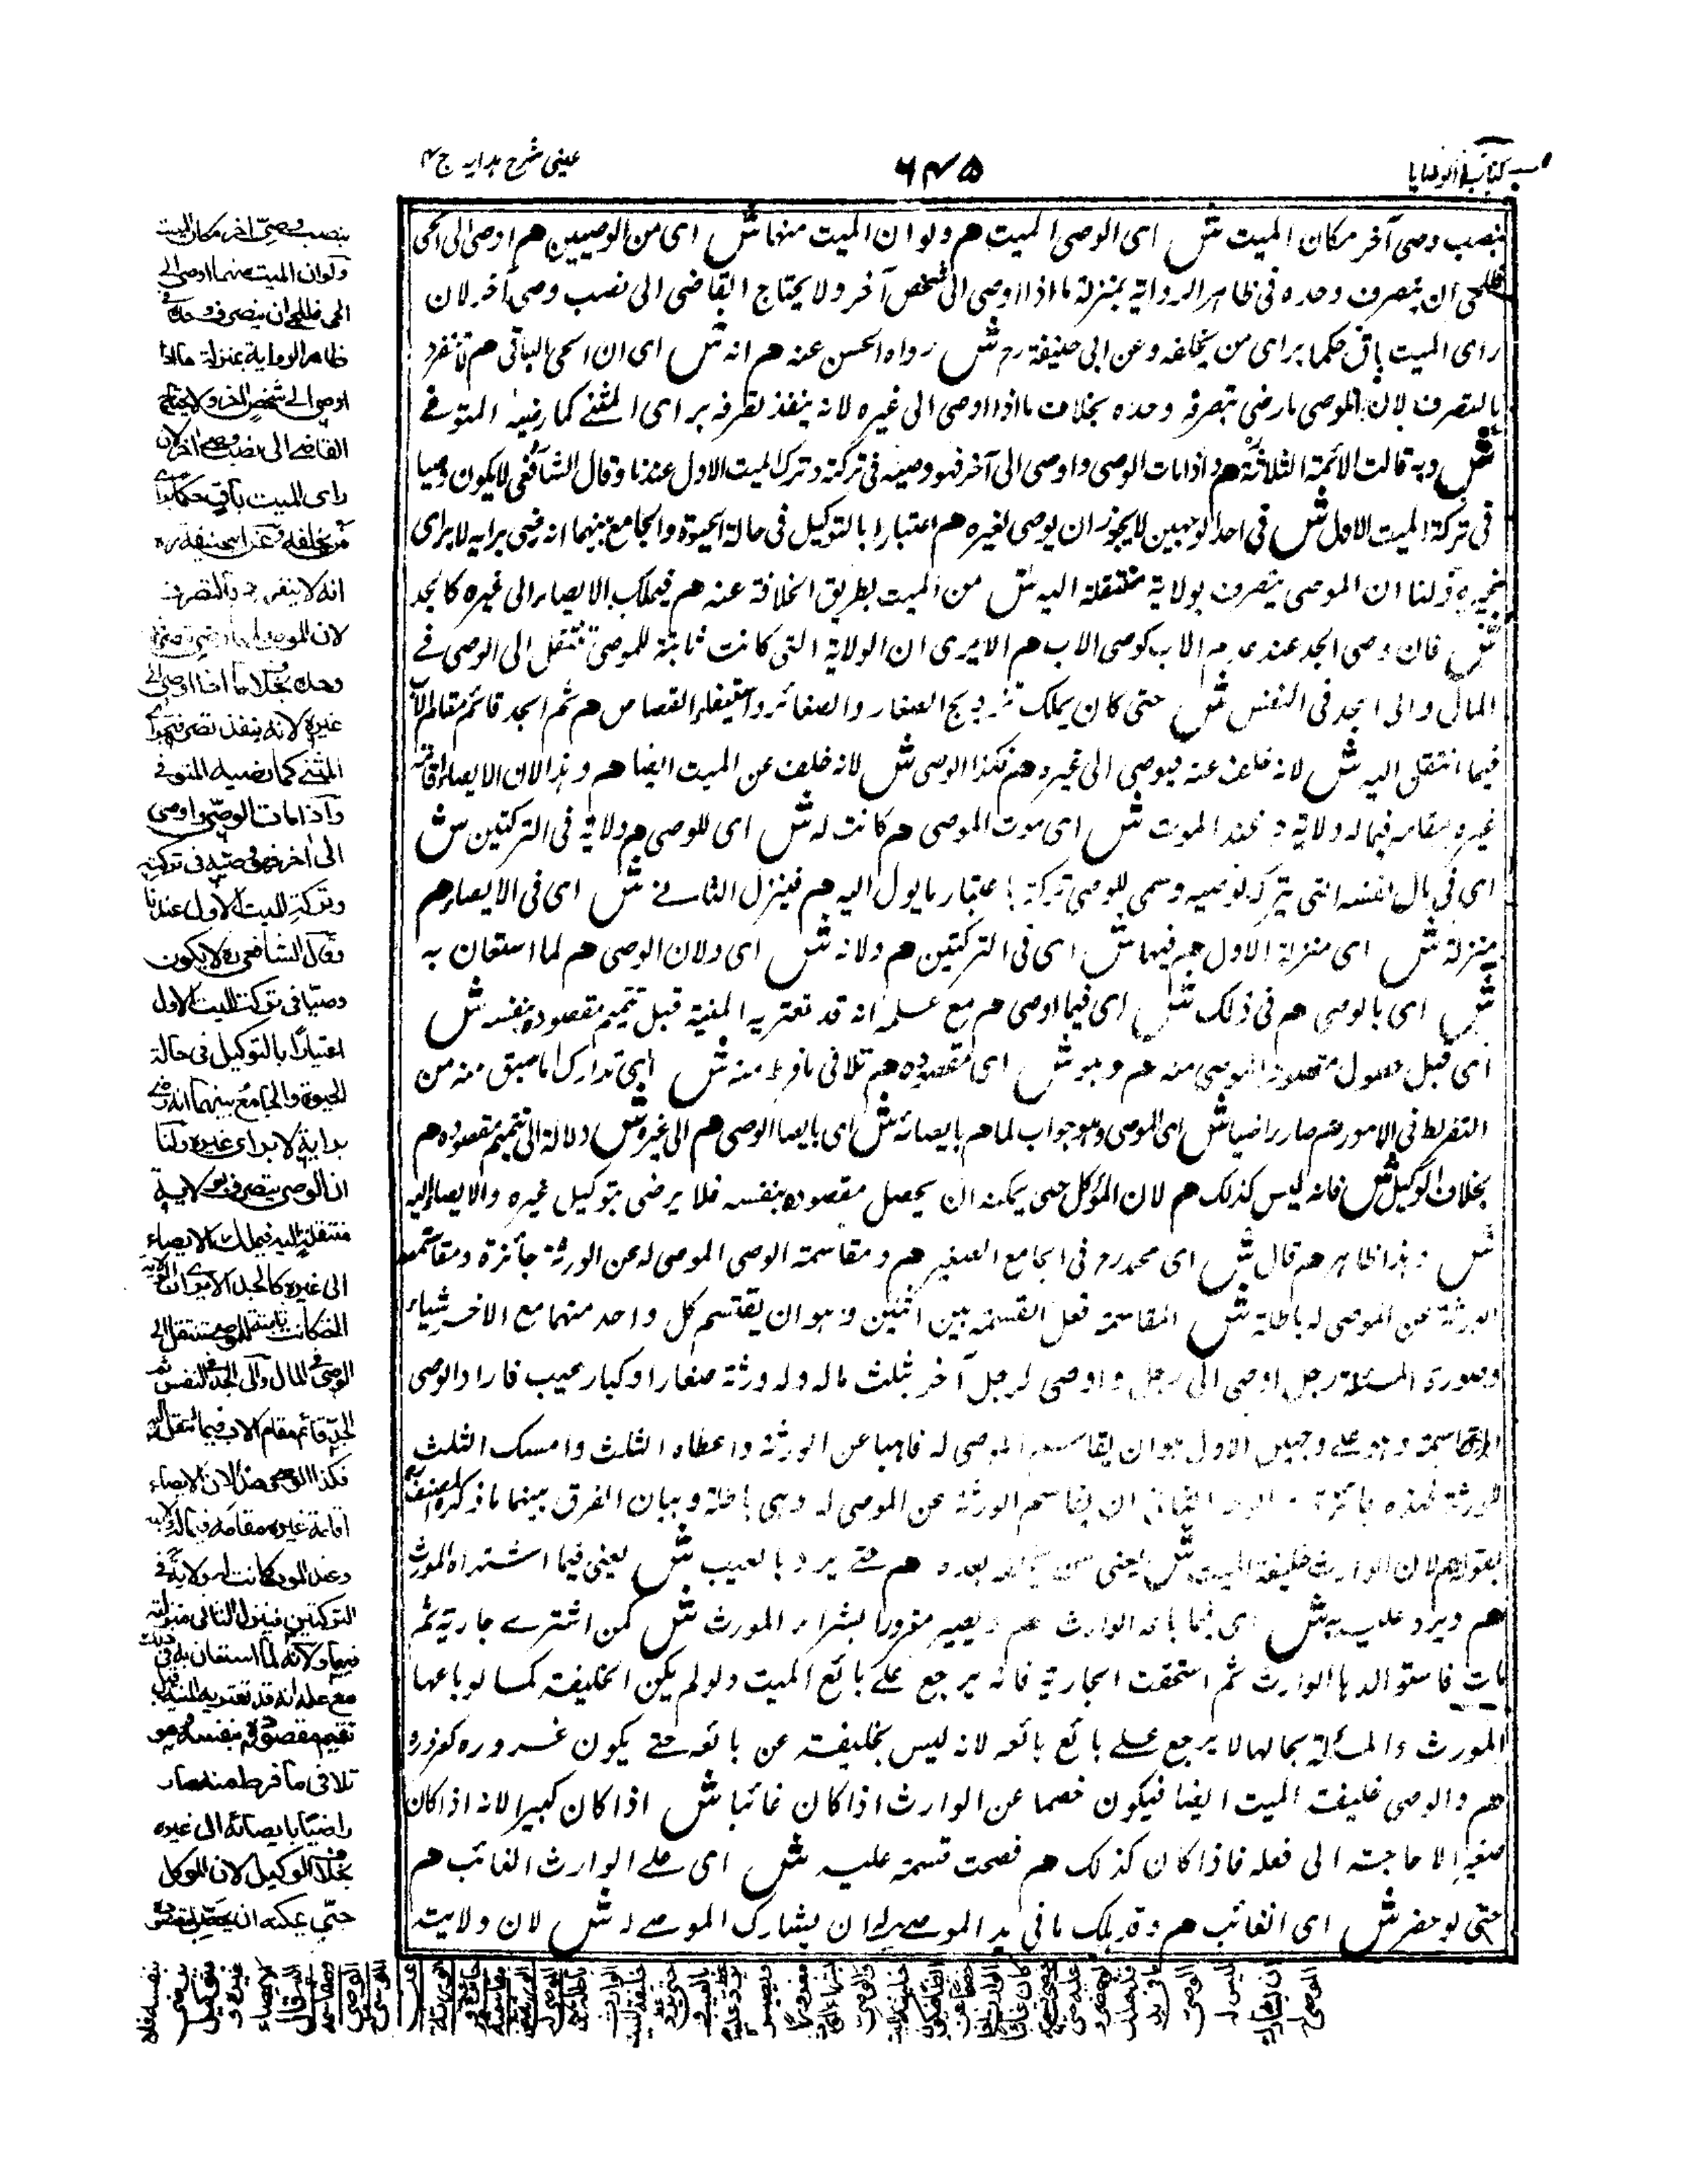 كتاب في الوصايا
٦٤٥
عینی شرح ہدایہ ج ٤
ینصب وصی آخر مکان المیت ش ای الوصی المیت هم ولو ان المیت منهما ش ای من الوصیین هم اوصی الی الحی
فللحی ان یتصرف وحده فی ظاهر الروایة بمنزلة ما اذا اوصی الی شخص آخر ولا یحتاج القاضی الی نصب وصی آخر لان
رای المیت باق حکما برای من یخلفه وعن ابی حنیفة رح ش رواه الحسن عنه هم انه ش ای ان الحی الباقی هم لا ینفرد
بالتصرف لان الموصی ما رضی بتصرفه وحده بخلاف ما اذا اوصی الی غیره لانه ینفذ تصرفه برای المثنی کما رضیه المتوفی
ش وبه قالت الائمة الثلاثة هم واذا مات الوصی واوصی الی آخر فهو وصیه فی ترکته وترکة المیت الاول عندنا وقال الشافعی لا یکون وصیا
فی ترکة المیت الاول ش فی احد الوجهین لا یجوز ان یوصی لغیره هم اعتبارا بالتوکیل فی حالة الحیوة والجامع بینهما انه رضی برایه لا برای
غیره ولنا ان الوصی یتصرف بولایة منتقلة الیه ش من المیت بطریق الخلافة عنه هم فیملک الایصاء الی غیره کالجد
ش فان وصی الجد عند عدم الاب کوصی الاب هم الا یری ان الولایة التی کانت ثابتة للموصی تنتقل الی الوصی فی
المال والی الجد فی النفس ش حتی کان یملک تزویج الصغار والصغائر واستیفاء القصاص هم ثم الجد قائم مقام الاب
فیما انتقل الیه ش لانه خلف عنه فیوصی الی غیره هم فکذا الوصی ش لانه خلف عن المیت ایضا هم وهذا لان الایصاء اقامة
غیره مقامه فیما له ولایة وعند الموت ش ای موت الموصی هم کانت له ش ای للوصی هم ولایة فی الترکتین ش
ای فی مال نفسه التی یترک لوصیه وسمی للوصی ترکة باعتبار ما یول الیه هم فینزل الثانی ش ای فی الایصاء هم
منزلة ش ای منزلة الاول هم فیها ش ای فی الترکتین هم ولانه ش ای ولان الوصی هم لما استعان به
ش ای بالوصی هم فی ذلک ش ای فیما اوصی هم مع علمه انه قد تعتریه المنیة قبل تتمیم مقصوده بنفسه ش
ای قبل حصول مقصود الموصی منه هم وهو ش ای مقصوده هم تلافی ما فرط منه ش ای تدارک ما سبق منه من
التفریط فی الامور هم صار راضیا ش ای الموصی وهو جواب لما هم بایصائه ش ای بایصا الوصی هم الی غیره ش دلالة الی تتمیم مقصوده هم
بخلاف الوکیل ش فانه لیس کذلک هم لان الموکل حی یمکنه ان یحصل مقصوده بنفسه فلا یرضی بتوکیل غیره والایصاء الیه
ش وهذا ظاهر هم قال ش ای محمد رح فی الجامع الصغیر هم ومقاسمة الوصی الموصی له عن الورثة جائزة ومقاسمته
الورثة عن الموصی له باطلة ش المقاسمة فعل القسمة بین اثنین وهو ان یقتسم کل واحد منهما مع الاخر شیاء
وصورة المسئلة رجل اوصی الی رجل واوصی لرجل آخر بثلث ماله وله ورثة صغار او کبار غیب فاراد الوصی
المقاسمة وهو علی وجهین الاول هو ان یقاسم الموصی له غائبا عن الورثة واعطاه الثلث وامسک الثلث
للورثة فهذه جائزة الوجه الثانی ان یقاسم الورثة عن الموصی له وهی باطلة وبیان الفرق بینهما ما ذکره المصنف
بقوله هم لان الوارث خلیفة المیت ش یعنی من بعده هم حتی یرد بالعیب ش یعنی فیما اشتراه المورث
هم ویرد علیه به ش ای فیما باعه الوارث هم ویصیر مغرورا بشراء المورث ش کمن اشتری جاریة ثم
مات فاستولدها الوارث ثم استحقت الجاریة فانه یرجع علی بائع المیت ولو لم یکن الخلیفة کما لو باعها
المورث والمسألة بحالها لا یرجع علی بائع بائعه لانه لیس بخلیفة عن بائعه حتی یکون غروره کغروره
هم والوصی خلیفة المیت ایضا فیکون خصما عن الوارث اذا کان غائبا ش اذا کان کبیرا لانه اذا کان
صغیرا لا حاجة الی فعله فاذا کان کذلک هم فصحت قسمته علیه ش ای علی الوارث الغائب هم
حتی لو حضر ش ای الغائب هم وقد هلک ما فی ید الموصی له ان یشارک الموصی له ش لان ولایته
ینصب وصی آخر مکان المیت
ولو ان المیت منهما اوصی الی
الحی فللحی ان یتصرف وحده فی
ظاهر الروایة بمنزلة ما اذا
اوصی الی شخص آخر ولا یحتاج
القاضی الی نصب وصی آخر لان
رای المیت باق حکما برای
من یخلفه وعن ابی حنیفة ره
انه لا ینفرد بالتصرف
لان الموصی ما رضی بتصرفه
وحده بخلاف ما اذا اوصی الی
غیره لانه ینفذ تصرفه برای
المثنی کما رضیه المتوفی
واذا مات الوصی واوصی
الی آخر فهو وصیه فی ترکته
وترکة المیت الاول عندنا
وقال الشافعی ره لا یکون
وصیا فی ترکة المیت الاول
اعتبارا بالتوکیل فی حالة
الحیوة والجامع بینهما انه رضی
برایه لا برای غیره ولنا
ان الوصی یتصرف بولایة
منتقلة الیه فیملک الایصاء
الی غیره کالجد الا یری ان الولایة
التی کانت ثابتة للموصی تنتقل الی
الوصی فی المال والی الجد فی النفس ثم
الجد قائم مقام الاب فیما انتقل الیه
فکذا الوصی هذا لان الایصاء
اقامة غیره مقامه فیما له ولایة
وعند الموت کانت له ولایة فی
الترکتین فینزل الثانی منزلته
فیهما ولانه لما استعان به فی ذلک
مع علمه انه قد تعتریه المنیة قبل
تتمیم مقصوده بنفسه وهو
تلافی ما فرط منه صار
راضیا بایصائه الی غیره
بخلاف الوکیل لان الموکل
حی یمکنه ان یحصل مقصوده